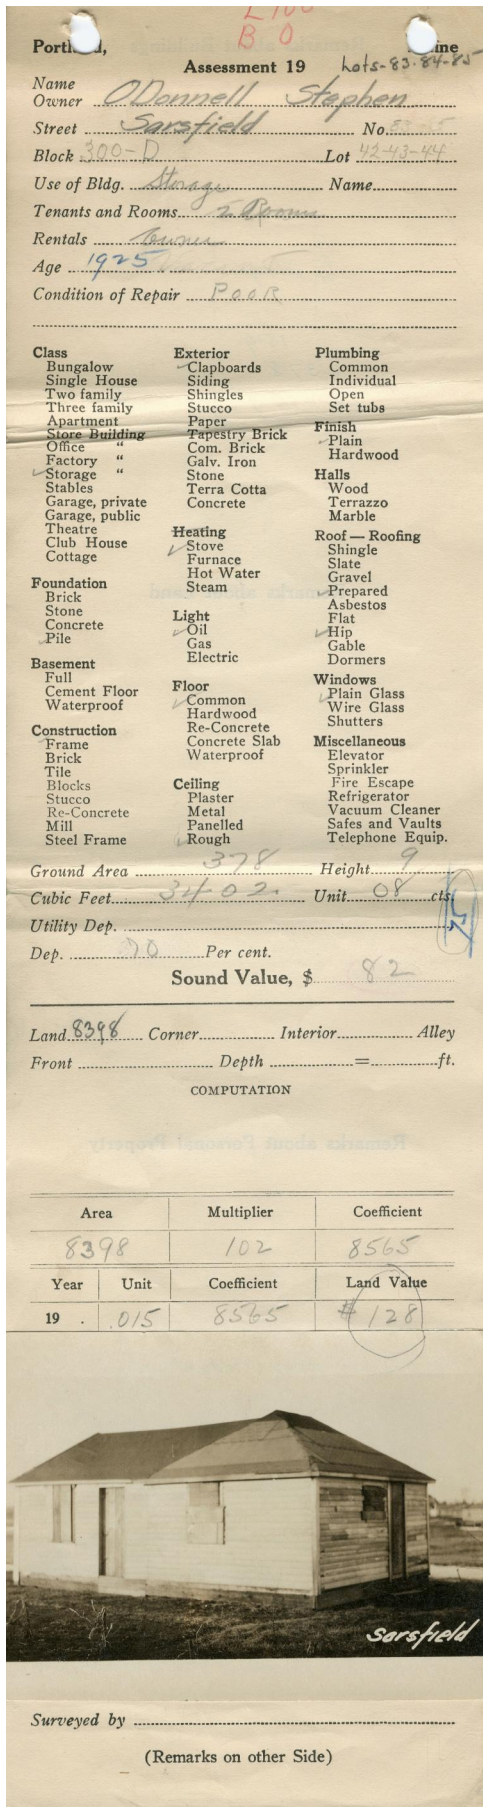 L 100
B 0
Portland, Maine
Assessment 19 Lots-83-84-85
Name
Owner O'Donnell Stephen
Street Sarsfield No.
Block 300-D Lot 42-43-44
Use of Bldg. Storage Name
Tenants and Rooms 2 Rooms
Rentals Owner
Age 1925
Condition of Repair POOR
Class
Bungalow
Single House
Two family
Three family
Apartment
Store Building
Office "
Factory "
✓Storage "
Stables
Garage, private
Garage, public
Theatre
Club House
Cottage
Foundation
Brick
Stone
Concrete
✓Pile
Basement
Full
Cement Floor
Waterproof
Construction
✓Frame
Brick
Tile
Blocks
Stucco
Re-Concrete
Mill
Steel Frame
Exterior
✓Clapboards
Siding
Shingles
Stucco
Paper
Tapestry Brick
Com. Brick
Galv. Iron
Stone
Terra Cotta
Concrete
Heating
✓Stove
Furnace
Hot Water
Steam
Light
✓Oil
Gas
Electric
Floor
✓Common
Hardwood
Re-Concrete
Concrete Slab
Waterproof
Ceiling
Plaster
Metal
Panelled
✓Rough
Plumbing
Common
Individual
Open
Set tubs
Finish
✓Plain
Hardwood
Halls
Wood
Terrazzo
Marble
Roof — Roofing
Shingle
Slate
Gravel
✓Prepared
Asbestos
Flat
✓Hip
Gable
Dormers
Windows
✓Plain Glass
Wire Glass
Shutters
Miscellaneous
Elevator
Sprinkler
Fire Escape
Refrigerator
Vacuum Cleaner
Safes and Vaults
Telephone Equip.
Ground Area 378 Height 9
Cubic Feet 3402 Unit 08 cts.
Utility Dep.
Dep. 70 Per cent.
Sound Value, $ 82
Land 8398 Corner Interior Alley
Front Depth = ft.
COMPUTATION
Area Multiplier Coefficient
8398 102 8565
Year Unit Coefficient Land Value
19 . .015 8565 $128
Sarsfield
Surveyed by
(Remarks on other Side)